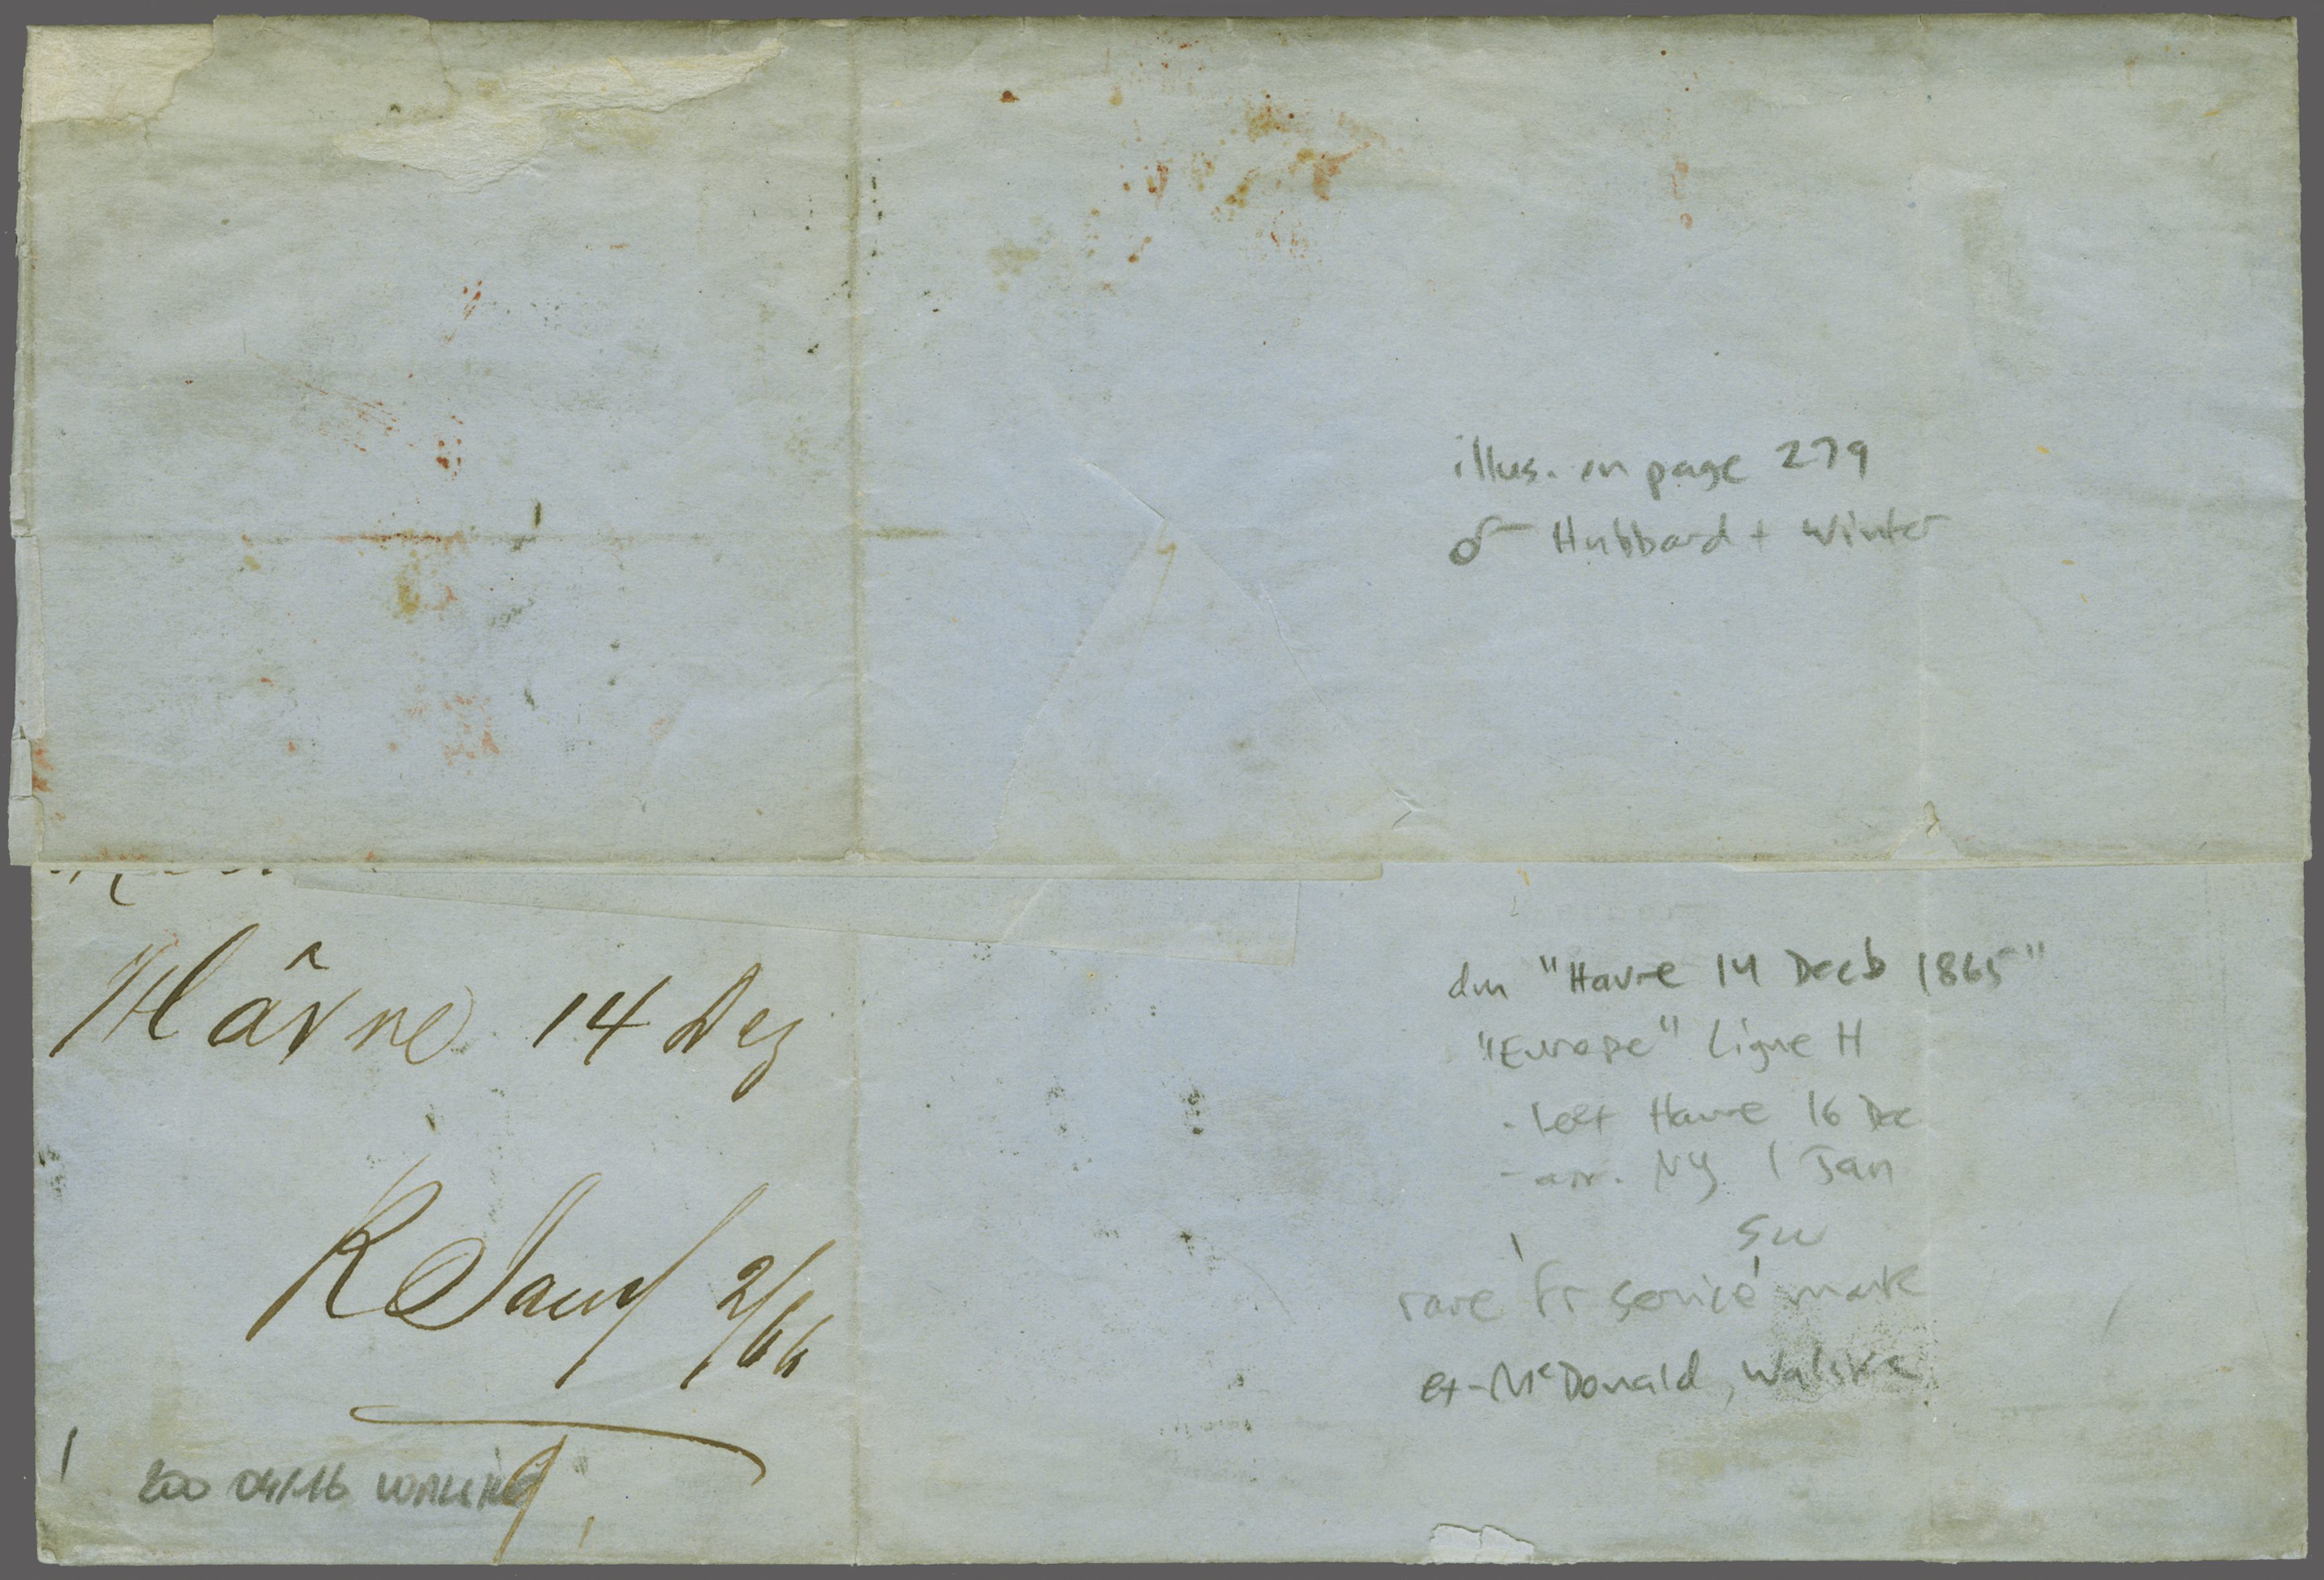 illus. on page 279
of Hubbard + Winter
Hâvre 14 Dez
2/66
dm "Havre 14 Decb 1865"
"Europe" Ligne H
- left Havre 16 Dec
- arr. NY 1 Jan
rare Fr service mark
ex-McDonald, Walske